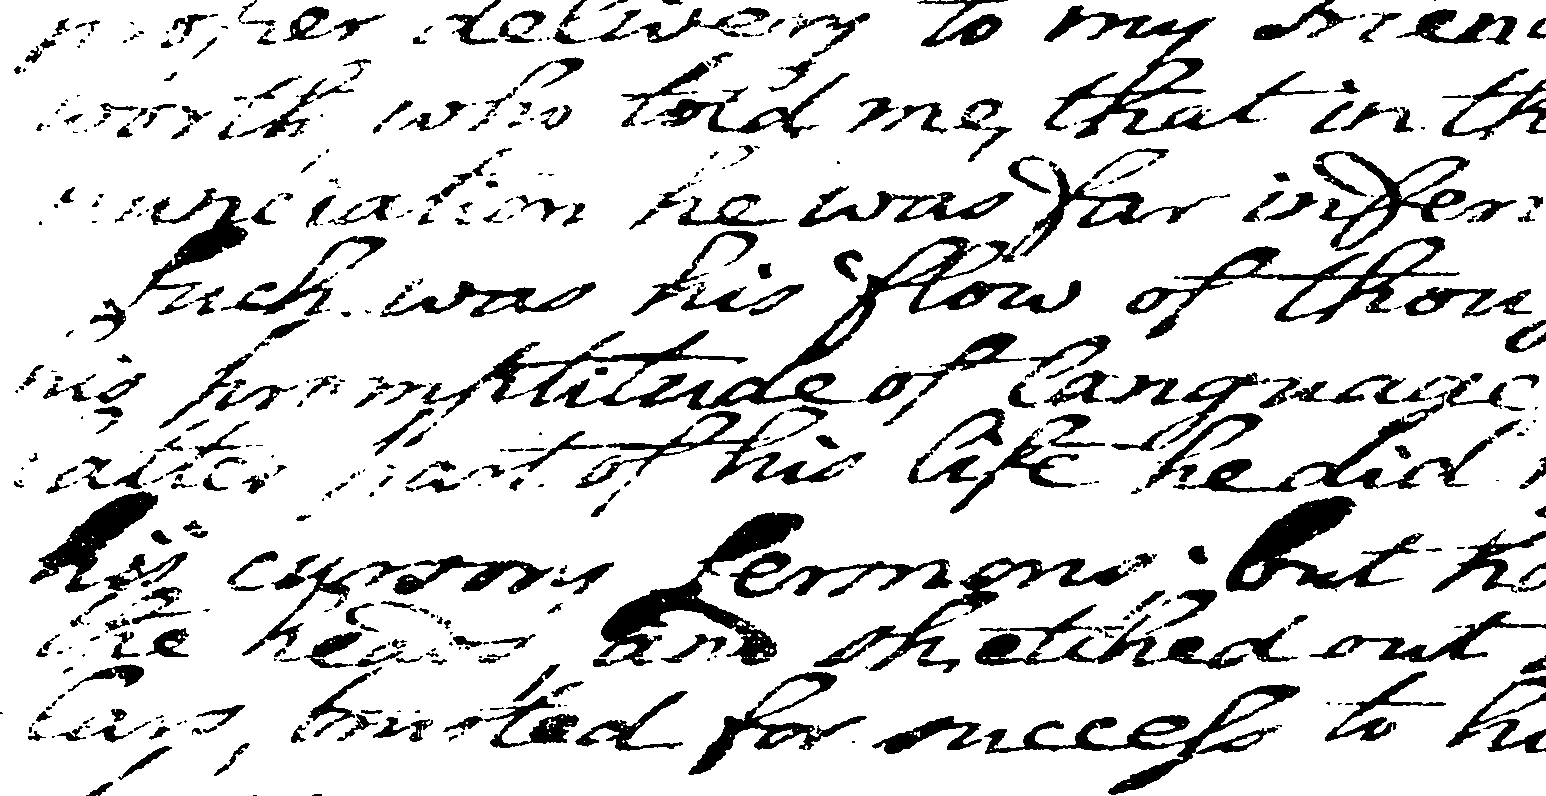 proper delivery to my Frien
worth who told me, that in th
nunciation he was far infer
Such was his flow of thoug
his promptitude of language
latter part of his life he did n
his cursory Sermons. but he
the heads and sketched out
lars, trusted for success to hi